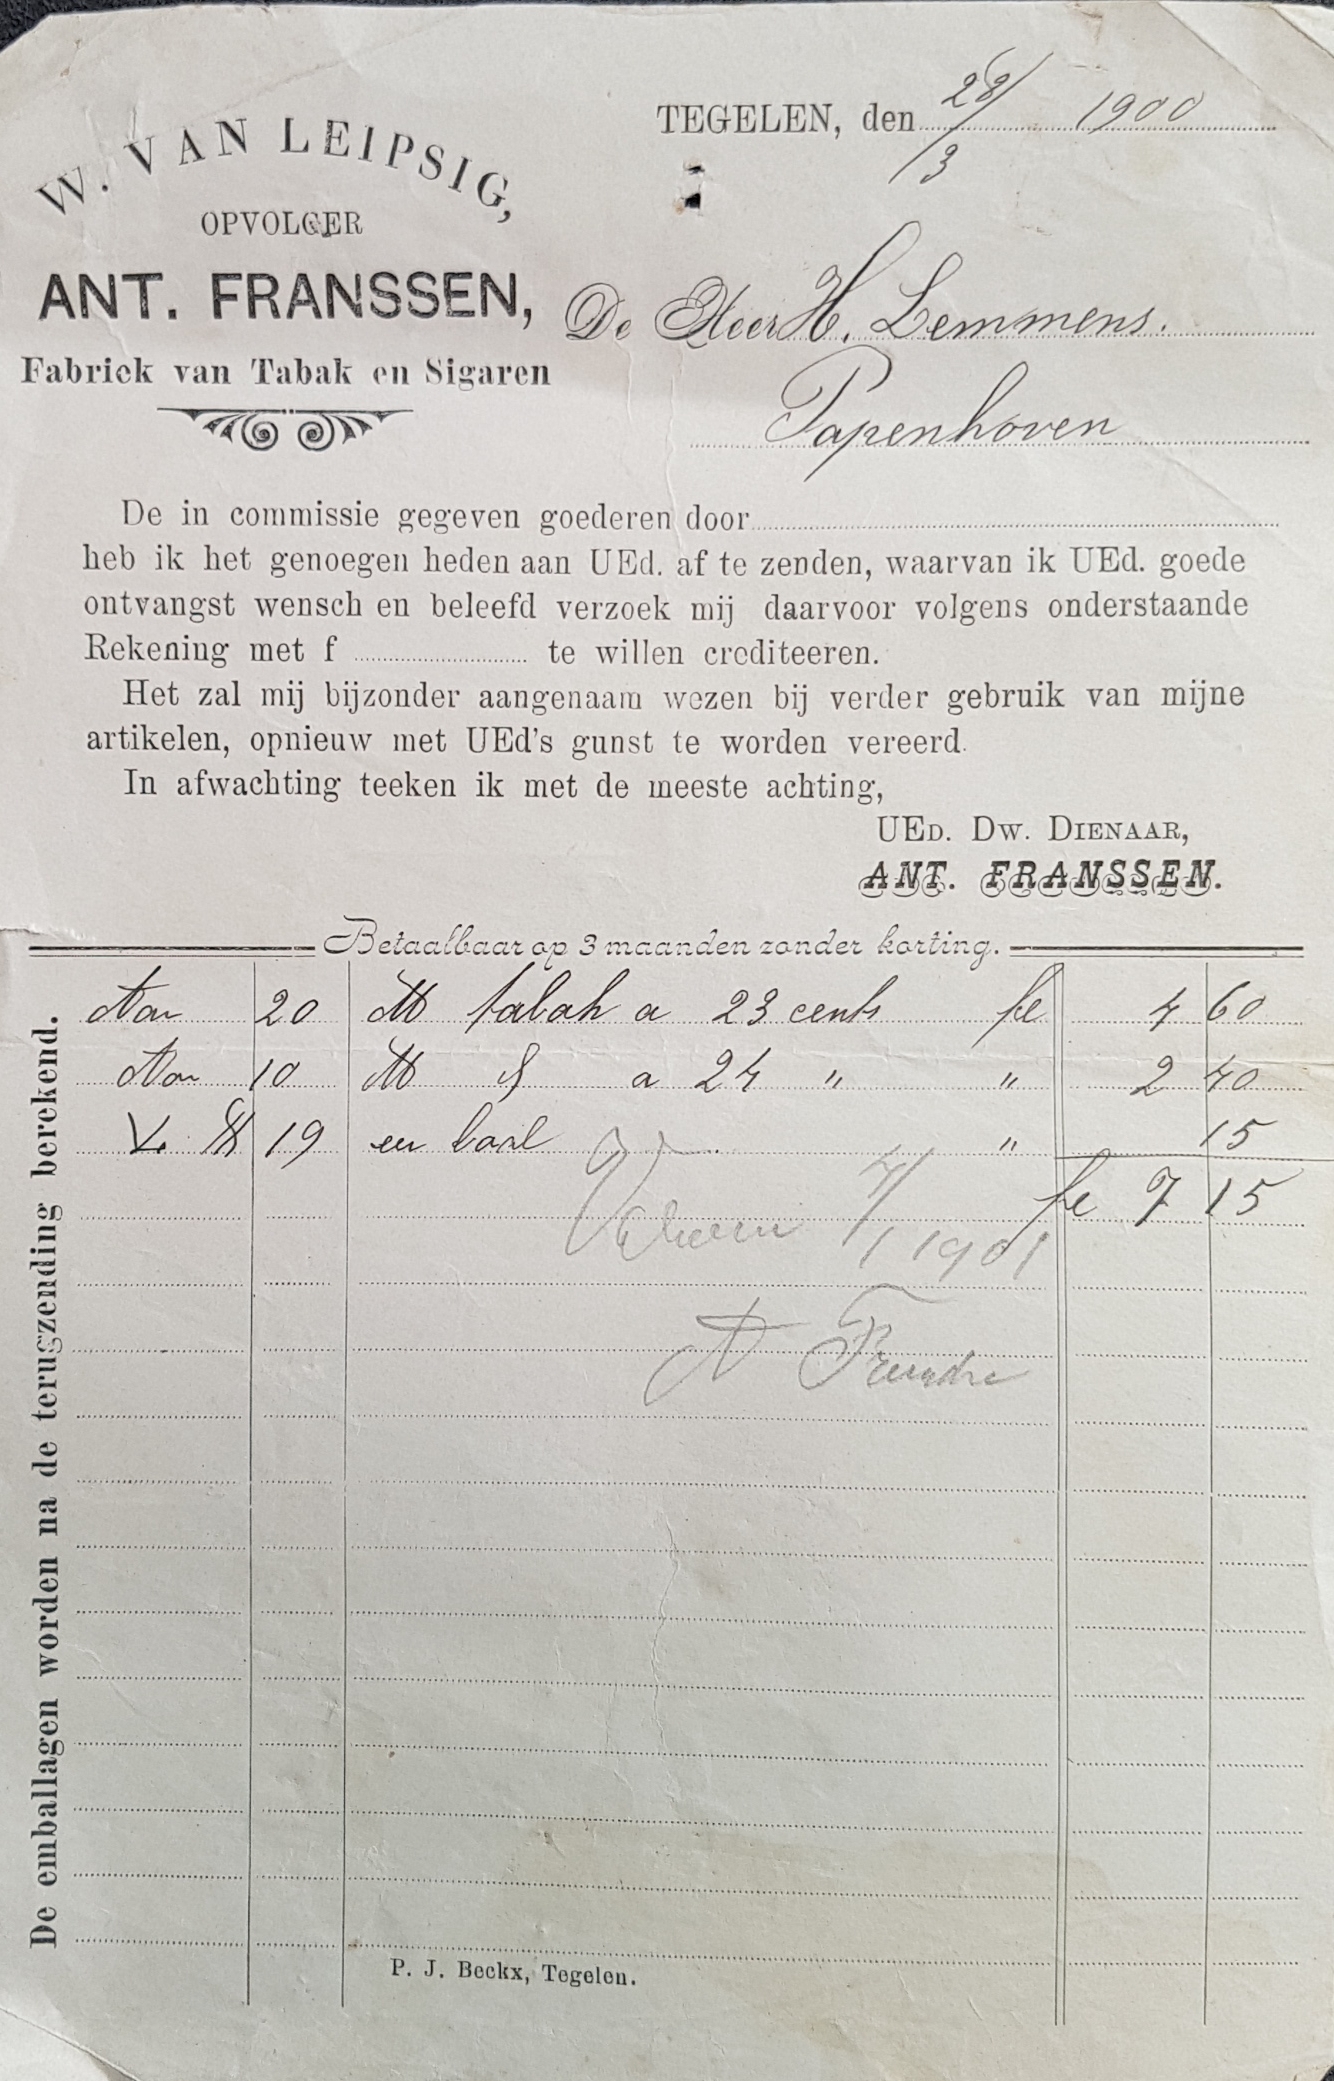 W. VAN LEIPSIG,
OPVOLGER
ANT. FRANSSEN,
Fabriek van Tabak en Sigaren
TEGELEN, den 28/3 1900
De Heer H. Lemmens.
Papenhoven
De in commissie gegeven goederen door
heb ik het genoegen heden aan UEd. af te zenden, waarvan ik UEd. goede
ontvangst wensch en beleefd verzoek mij daarvoor volgens onderstaande
Rekening met f te willen crediteeren.
Het zal mij bijzonder aangenaam wezen bij verder gebruik van mijne
artikelen, opnieuw met UEd's gunst te worden vereerd.
In afwachting teeken ik met de meeste achting,
UED. DW. DIENAAR,
ANT. FRANSSEN.
Betaalbaar op 3 maanden zonder korting.
20 tabak a 23 cents fc 4 60
10 a 24 " " 2 40
19 een baal " 15
fc 7 15
1901
De emballagen worden na de terugzending berekend.
P. J. Beckx, Tegelen.